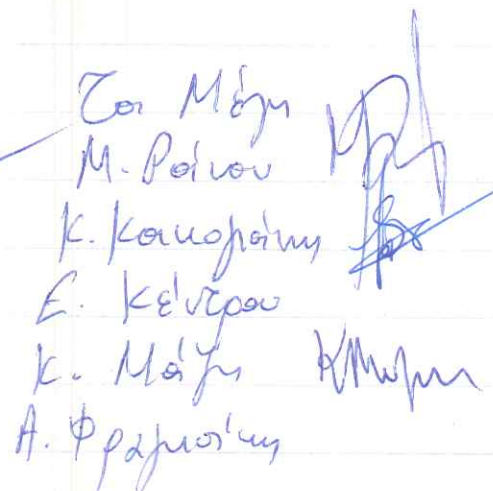 Τα Μέλη
Μ. Ράπου
Κ. Κακομάνης
Ε. Κέντρου
Κ. Μάζης
Α. Φραγκάκης